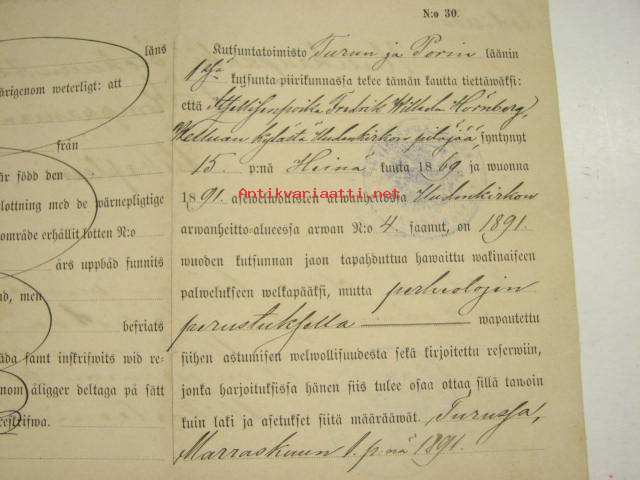 N:o 30.
läns
ärigenom weterligt: att
från
är född den
lottning med de wärnepligtige
område erhållit lotten N:o
års uppbåd funnits
ad, men
befriats
äda samt inskrifwits wid re-
nom åligger deltaga på sätt
reskrifwa.
Kutsuntatoimisto Turun ja Porin läänin
1 kutsunta piirikunnassa tekee tämän kautta tiettäwäksi:
että Itsellisenpoika Fredrik Wilhelm Hörnberg,
kylästä Uudenkirkon pitäjää syntynyt
15. p:nä Heinä kuuta 1869 ja wuonna
1891. asewelwollisten arwanheitossa Uudenkirkon
arwanheitto-alueessa arwan N:o 4. saanut, on 1891.
wuoden kutsunnan jaon tapahduttua hawaittu wakinaiseen
palwelukseen welkapääksi, mutta perheolojen
perustuksella wapautettu
siihen astumisen welwollisuudesta sekä kirjoitettu reserwiin,
jonka harjoituksissa hänen siis tulee osaa ottaa sillä tawoin
kuin laki ja asetukset siitä määrääwät. Turussa,
Marraskuun 1. p:nä 1891.
Antikvariaatti.net